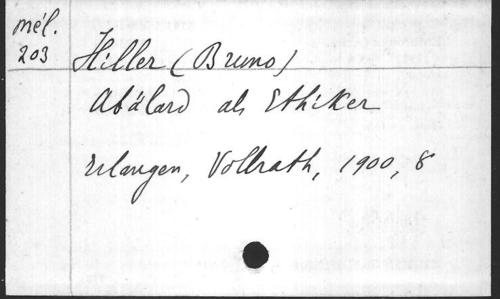 mél.
203
Hiller (Bruno)
Abälard als Ethiker
Erlangen, Vollrath, 1900, 8